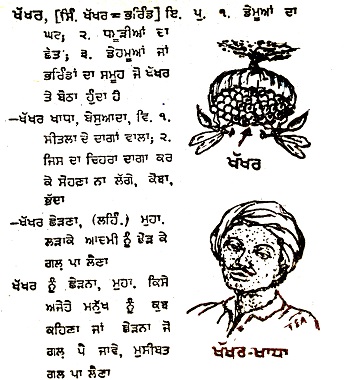 ਖੱਖਰ, [ਸਿੰ. ਖੱਖਰ = ਭਰਿੰਡ] ਇ. ਪੁ. ੧. ਡੇਮੂਆਂ ਦਾ
ਘਰ; ੨. ਧਮੂੜੀਆਂ ਦਾ
ਛੱਤਾ; ੩. ਡੇਹਮੂਆਂ ਜਾਂ
ਭਰਿੰਡਾਂ ਦਾ ਸਮੂਹ ਜੋ ਖੱਖਰ
ਤੇ ਬੈਠਾ ਹੁੰਦਾ ਹੈ
–ਖੱਖਰ ਖਾਧਾ, ਬੇਸੁਆਦਾ, ਵਿ. ੧.
ਸੀਤਲਾ ਦੇ ਦਾਗਾਂ ਵਾਲਾ; ੨.
ਜਿਸ ਦਾ ਚਿਹਰਾ ਦਾਗਾ ਕਰ
ਕੇ ਸੋਹਣਾ ਨਾ ਲੱਗੇ, ਕੋਝਾ,
ਭੱਦਾ
–ਖੱਖਰ ਛੇੜਨਾ, (ਲਹਿੰ.) ਮੁਹਾ.
ਲੜਾਕੇ ਆਦਮੀ ਨੂੰ ਛੇੜ ਕੇ
ਗਲ ਪਾ ਲੈਣਾ
ਖੱਖਰ ਨੂੰ ਛੇੜਨਾ, ਮੁਹਾ. ਕਿਸੇ
ਅਜੇਹੇ ਮਨੁੱਖ ਨੂੰ ਕੁਝ
ਕਹਿਣਾ ਜਾਂ ਛੇੜਨਾ ਜੋ
ਗਲ ਪੈ ਜਾਵੇ, ਮੁਸੀਬਤ
ਗਲ ਪਾ ਲੈਣਾ
ਖੱਖਰ
ਖੱਖਰ-ਖਾਧਾ